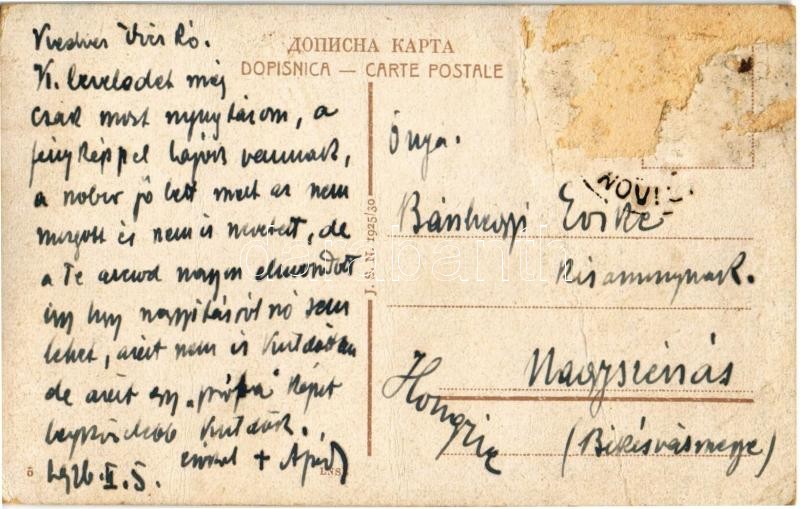 ДОПИСНА КАРТА
DOPISNICA — CARTE POSTALE
Kedves
K. leveledet még
csak most nyugtázom, a
fényképpel bajok vannak,
a nobir jó lett mert az nem
mozgott és nem is nevetett, de
a Te arcod nagyon elmozdult
úgy hogy nagyításról nó sem
lehet, azért nem is küldöttem
de azért egy "próba" képet
legközelebb küldök.
1926. II. 5.
csókol + Apád
J. S. N. 1925/30
5
NOVI
Bánhegyi Evike
kisasszonynak.
Nagyszénás
(Békésvármegye)
Hongrie